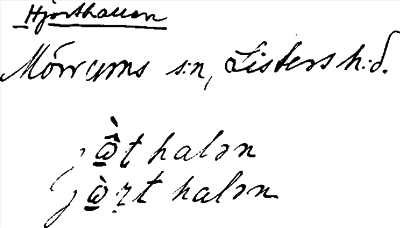 Hjorthallen
Mörrums s:n, Listers h:d.
jω̂̀t halən
jὼr̥t halən